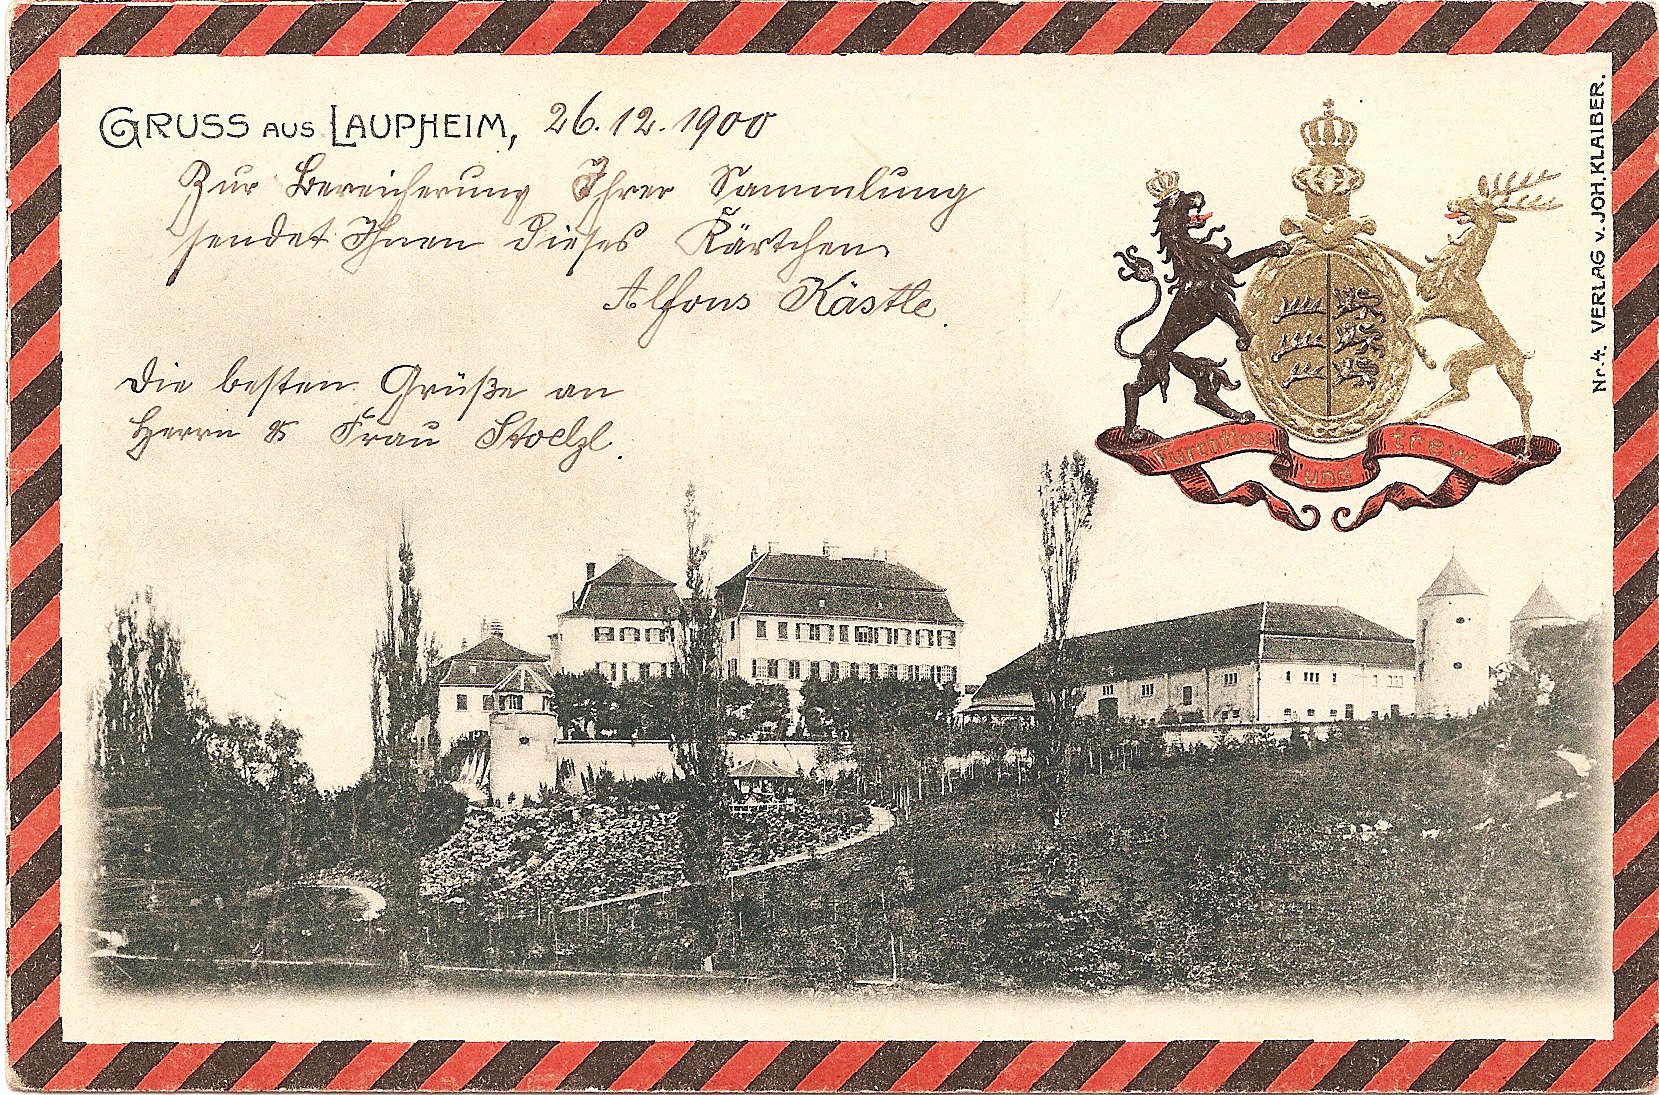 GRUSS AUS LAUPHEIM, 26.12.1900
Zur Bereicherung Ihrer Sammlung
sendet Ihnen dieses Kärtchen
Alfons Kästle.
Die besten Grüße an
Herrn & Frau Stoelzl.
Furchtlos und trew.
Nr. 4. VERLAG v. JOH. KLAIBER.